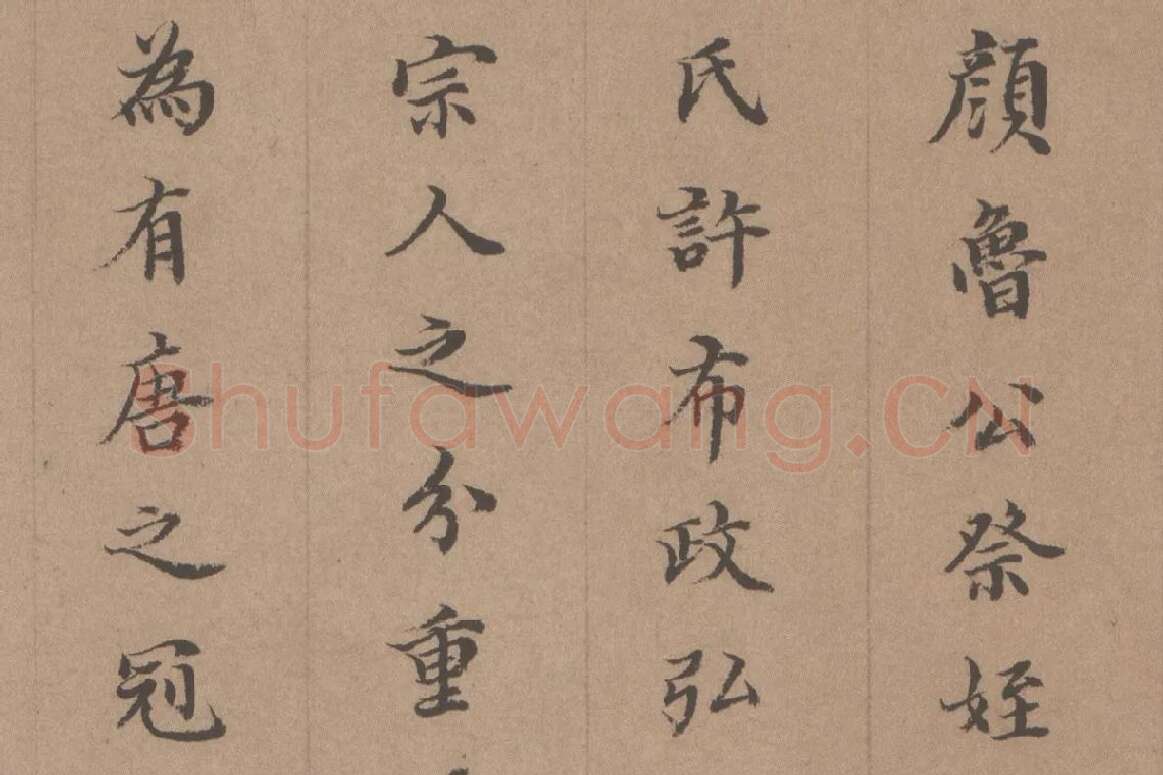 顔魯公祭姪
氏許布政弘
宗人之分重
為有唐之冠
shufawang.CN